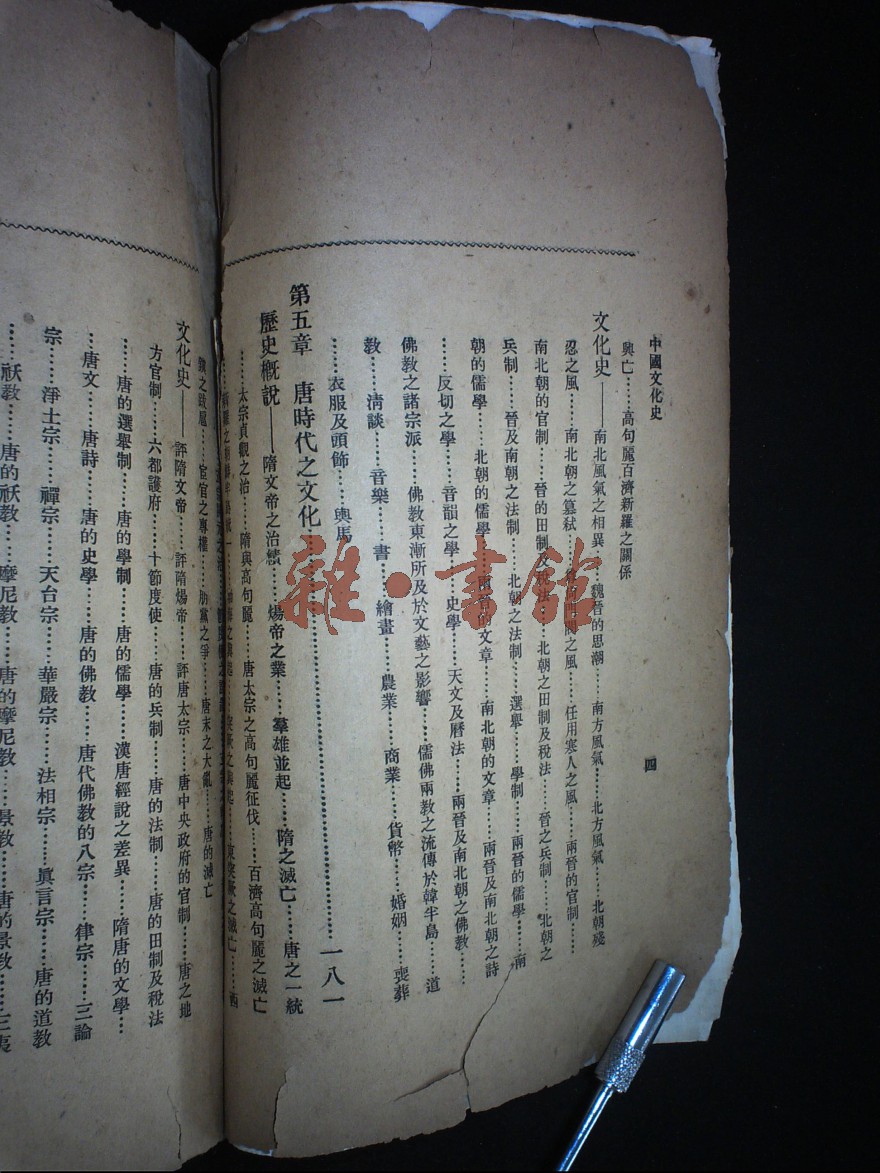 中國文化史
四
興亡……高句麗百濟新羅之關係
文化史——南北風氣之相異……魏晉的思潮……南方風氣……北方風氣……北朝殘
忍之風……南北朝之篡弑……之風……任用寒人之風……兩晉的官制……
南北朝的官制……晉的田制及稅法……北朝之田制及稅法……晉之兵制……北朝之
兵制……晉及南朝之法制……北朝之法制……選舉……學制……兩晉的儒學……南
朝的儒學……北朝的儒學……兩晉的文章……南北朝的文章……兩晉及南北朝之詩
……反切之學……音韻之學……史學……天文及曆法……兩晉及南北朝之佛教……
佛教之諸宗派……佛教東漸所及於文藝之影響……儒佛兩教之流傳於韓半島……道
教……淸談……音樂……書……繪畫……農業……商業……貨幣……婚姻……喪葬
……衣服及頭飾……輿馬
第五章　唐時代之文化……一八一
歷史概說——隋文帝之治績……煬帝之業……羣雄並起……隋之滅亡……唐之一統
……太宗貞觀之治……隋與高句麗……唐太宗之高句麗征伐……百濟高句麗之滅亡
……東突厥之滅亡……西
鎮之跋扈……宦官之專權……朋黨之爭……唐末之大亂……唐的滅亡
文化史——評隋文帝……評隋煬帝……評唐太宗……唐中央政府的官制……唐之地
方官制……六都護府……十節度使……唐的兵制……唐的法制……唐的田制及稅法
……唐的選舉制……唐的學制……唐的儒學……漢唐經說之差異……隋唐的文學…
……唐文……唐詩……唐的史學……唐的佛教……唐代佛教的八宗……律宗……三論
宗……淨土宗……禪宗……天台宗……華嚴宗……法相宗……眞言宗……唐的道教
……祆教……唐的祆教……摩尼教……唐的摩尼教……景教……唐的景教……三夷
雜·書館